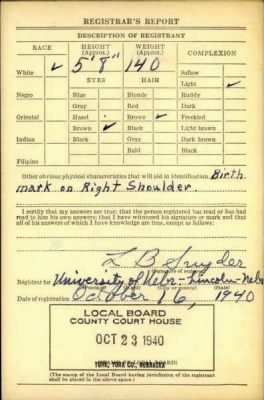 REGISTRAR'S REPORT
DESCRIPTION OF REGISTRANT
RACE HEIGHT (Approx.) WEIGHT (Approx.) COMPLEXION
White ✓ 5'8" 140 Sallow
EYES HAIR Light ✓
Negro Blue Blonde Ruddy
Gray Red Dark
Oriental Hazel Brown ✓ Freckled
Brown ✓ Black Light brown
Indian Black Gray Dark brown
Bald Black
Filipino
Other obvious physical characteristics that will aid in identification. Birth
mark on Right Shoulder.
I certify that my answers are true; that the person registered has read or has had
read to him his own answers; that I have witnessed his signature or mark and that
all of his answers of which I have knowledge are true, except as follows:
L B Snyder
Registrar for University of Nebr. Lincoln Nebr
(City or county)
Date of registration October 16, 1940
LOCAL BOARD
COUNTY COURT HOUSE
OCT 23 1940
YORK, YORK CO., NEBRASKA
(The stamp of the Local Board having jurisdiction of the registrant
shall be placed in the above space.)